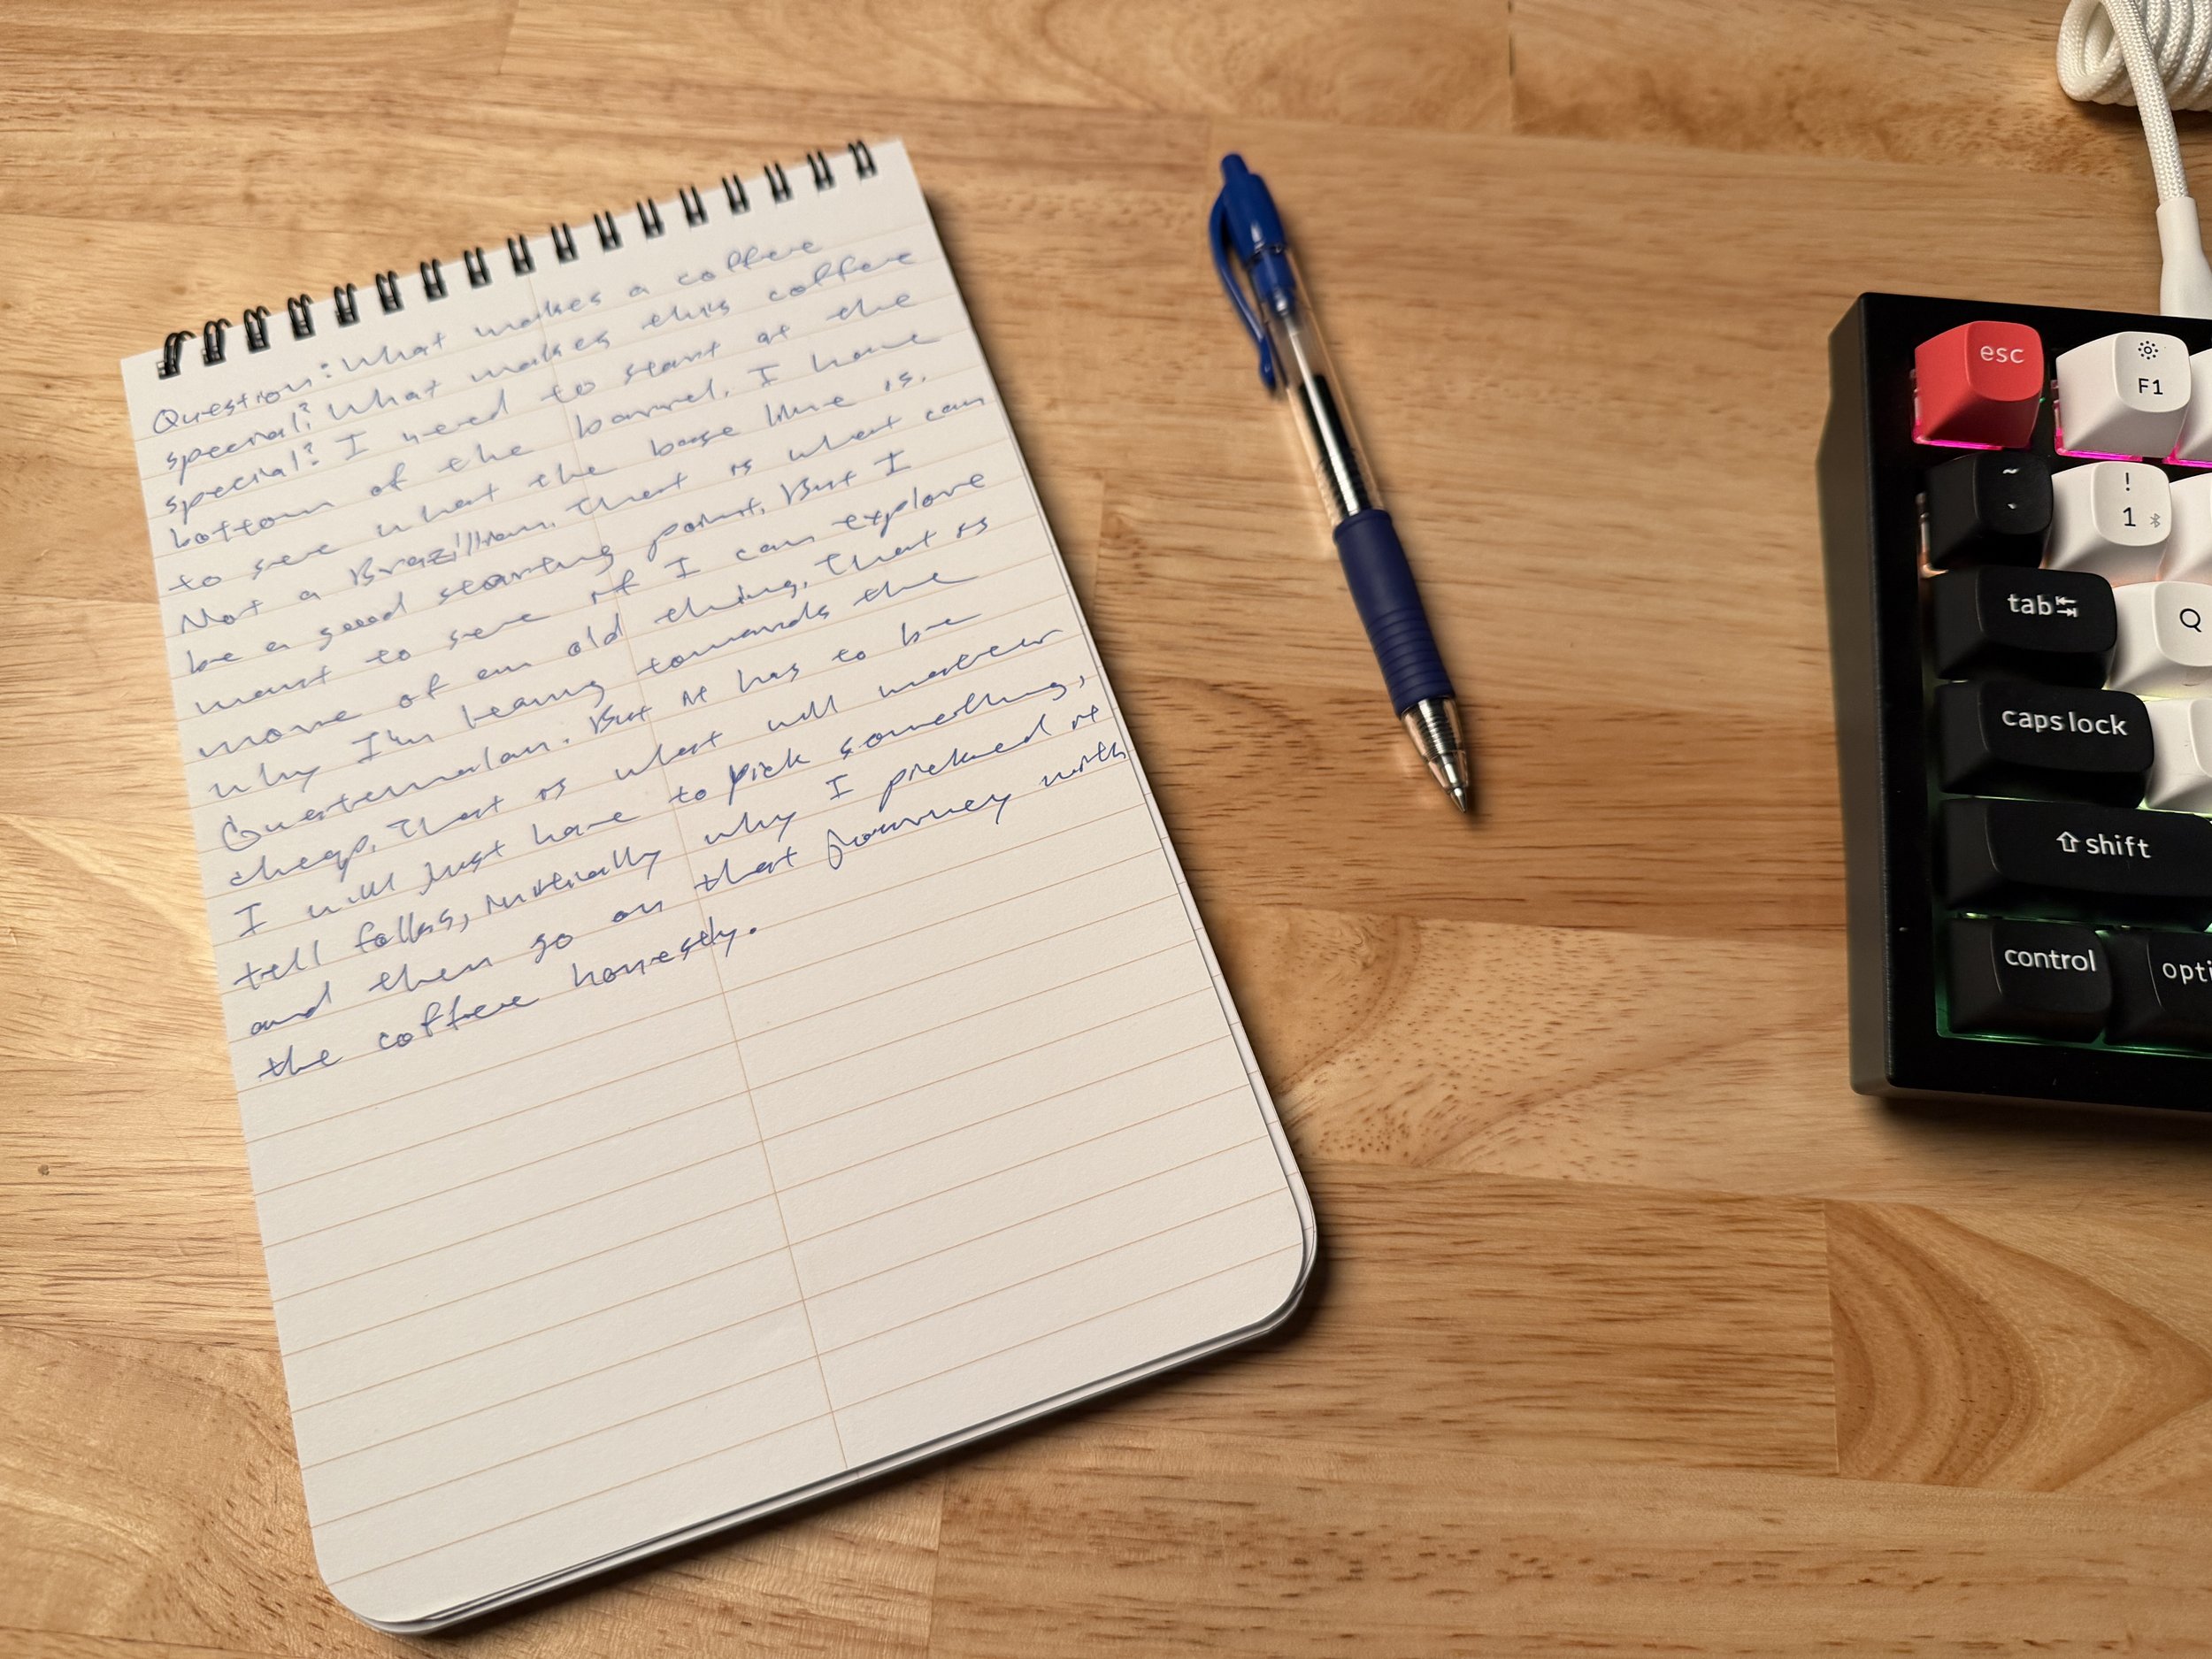 Question: What makes a coffee
special? What makes this coffee
special? I need to start at the
bottom of the barrel. I have
to see what the base line is.
Not a Brazillian. That is what can
be a good starting point. But I
want to see if I can explore
more of an old thing. That is
why I'm leaning towards the
Guatemalan. But it has to be
cheap. That is what will matter
I will just have to pick something,
tell folks, initially why I picked it
and then go on that journey with
the coffee honestly.
esc
F1
~
!
1
tab
Q
caps lock
shift
control
opti